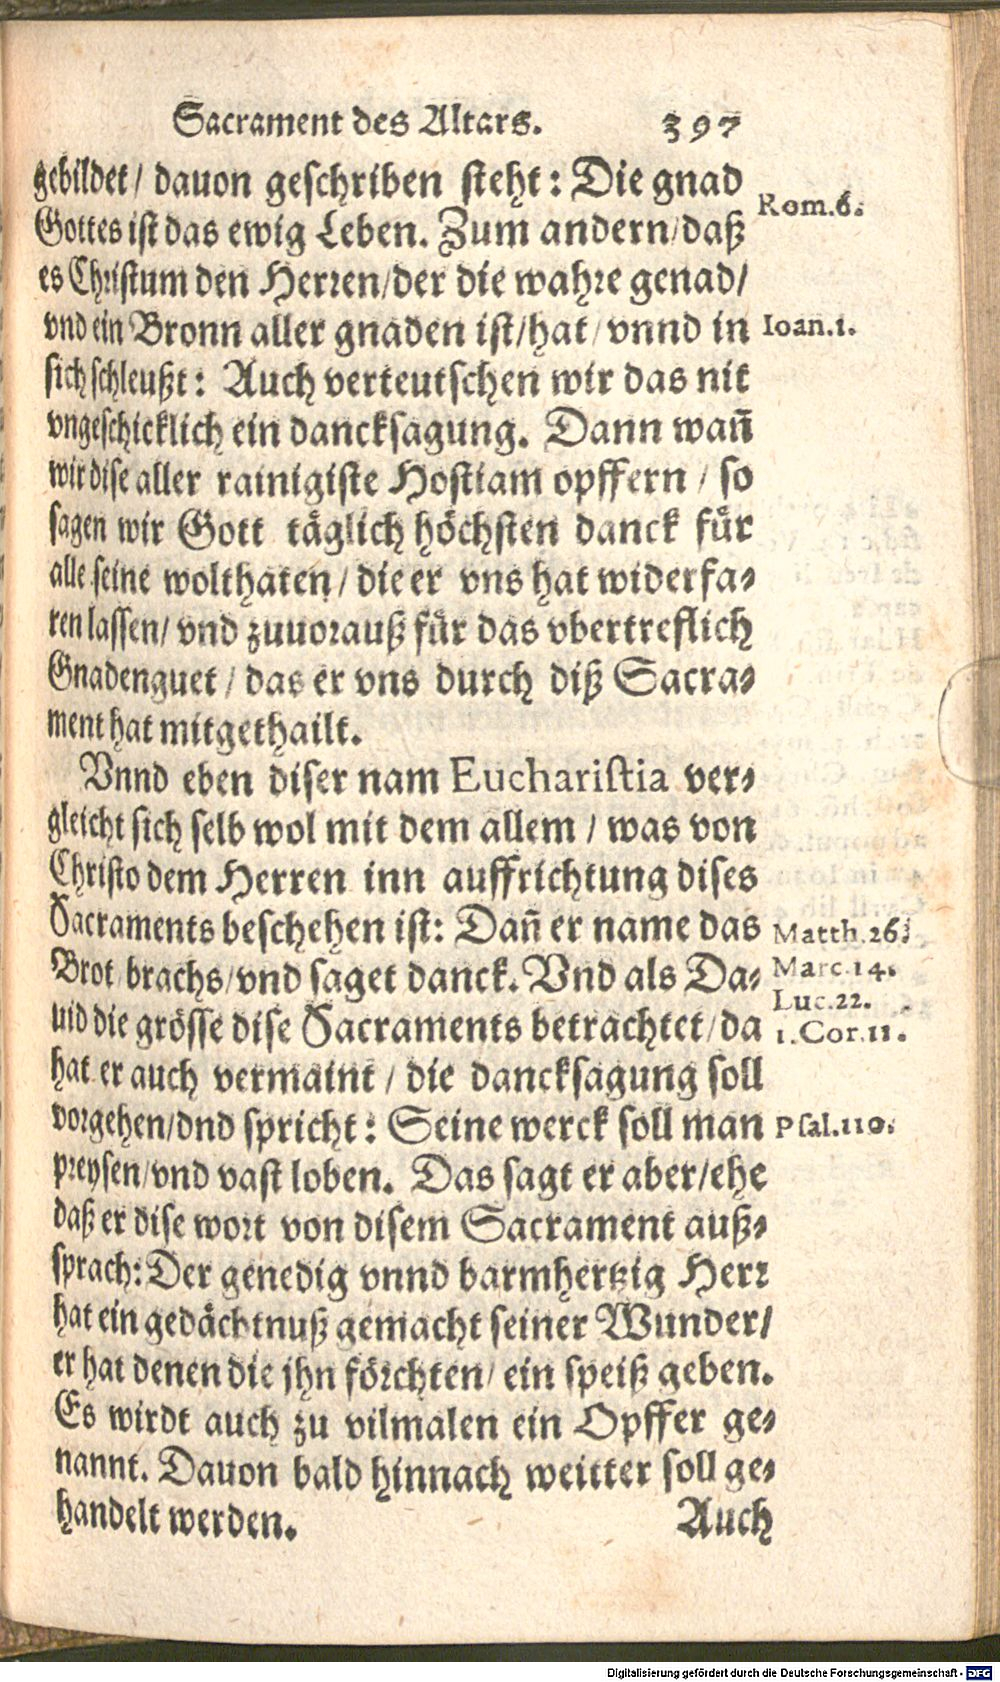 Sacrament des Altars. 397
gebildet / dauon geschriben steht: Die gnad
Gottes ist das ewig Leben. Zum andern / daß
es Christum den Herren / der die wahre genad /
vnd ein Bronn aller gnaden ist / hat / vnnd in
sich schleußt: Auch verteutschen wir das nit
vngeschicklich ein dancksagung. Dann wañ
wir dise aller rainigiste Hostiam opffern / so
sagen wir Gott täglich höchsten danck für
alle seine wolthaten / die er vns hat widerfa-
ren lassen / vnd zuuorauß für das vbertreflich
Gnadenguet / das er vns durch diß Sacra-
ment hat mitgethailt.
Vnnd eben diser nam Eucharistia ver-
gleicht sich selb wol mit dem allem / was von
Christo dem Herren inn auffrichtung dises
Sacraments beschehen ist: Dañ er name das
Brot / brachs / vnd saget danck. Vnd als Da-
uid die grösse dise Sacraments betrachtet / da
hat er auch vermaint / die dancksagung soll
vorgehen / dnd spricht: Seine werck soll man
preysen / vnd vast loben. Das sagt er aber / ehe
daß er dise wort von disem Sacrament auß-
sprach: Der genedig vnnd barmhertzig Herr
hat ein gedächtnuß gemacht seiner Wunder /
er hat denen die jhn förchten / ein speiß geben.
Es wirdt auch zu vilmalen ein Opffer ge-
nannt. Dauon bald hinnach weitter soll ge-
handelt werden. Auch
Rom.6.
Ioan.1.
Matth.26.
Marc.14.
Luc.22.
1.Cor.11.
Psal.110.
Digitalisierung gefördert durch die Deutsche Forschungsgemeinschaft - DFG